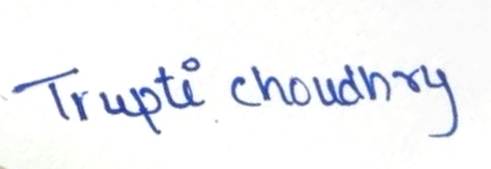 Trupti choudhry